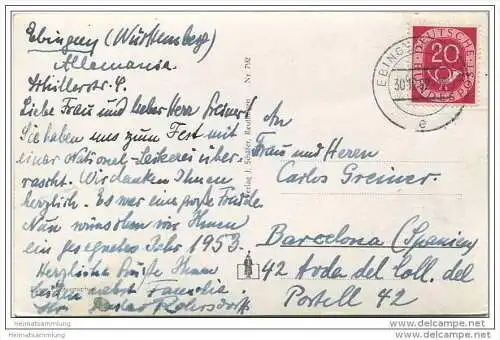 Ebingen (Württemberg)
Allemania.
Schillerstr. 4.
Liebe Frau und lieber Herr Greiner!
Sie haben uns zum Fest mit
einer National-Leckerei über-
rascht. Wir danken Ihnen
herzlich. Es war eine große Freude.
Nun wünschen wir Ihnen
ein gesegnetes Jahr 1953.
Herzliche Grüße Ihnen
beiden nebst Familie.
Ihr
Nr. 792
Verlag J. Schäfer, Reutlingen
DEUTSCHE BUNDESPOST
20
EBINGEN
e
An
Frau und Herrn
Carlos Greiner.
Barcelona (Spanien)
42 Avda del Coll. del
Portell 42
Heimatsammlung
www.heimatsammlung.de
Heimatsammlung
www.heimatsammlung.de